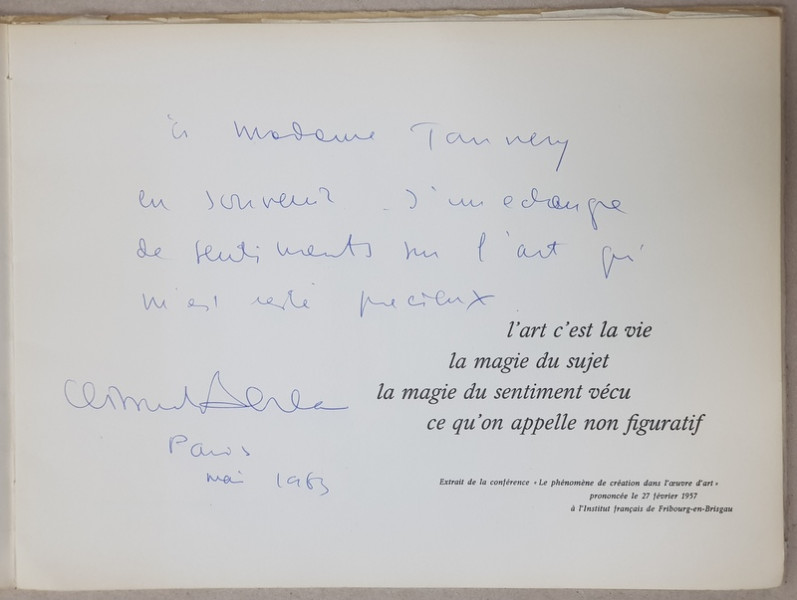 à Madame Tannery
en souvenir d'un echange
de sentiments sur l'art qui
m'est resté precieux
l'art c'est la vie
la magie du sujet
la magie du sentiment vécu
ce qu'on appelle non figuratif
Paris
mai 1963
Extrait de la conférence « Le phénomène de création dans l'œuvre d'art »
prononcée le 27 février 1957
à l'Institut français de Fribourg-en-Brisgau